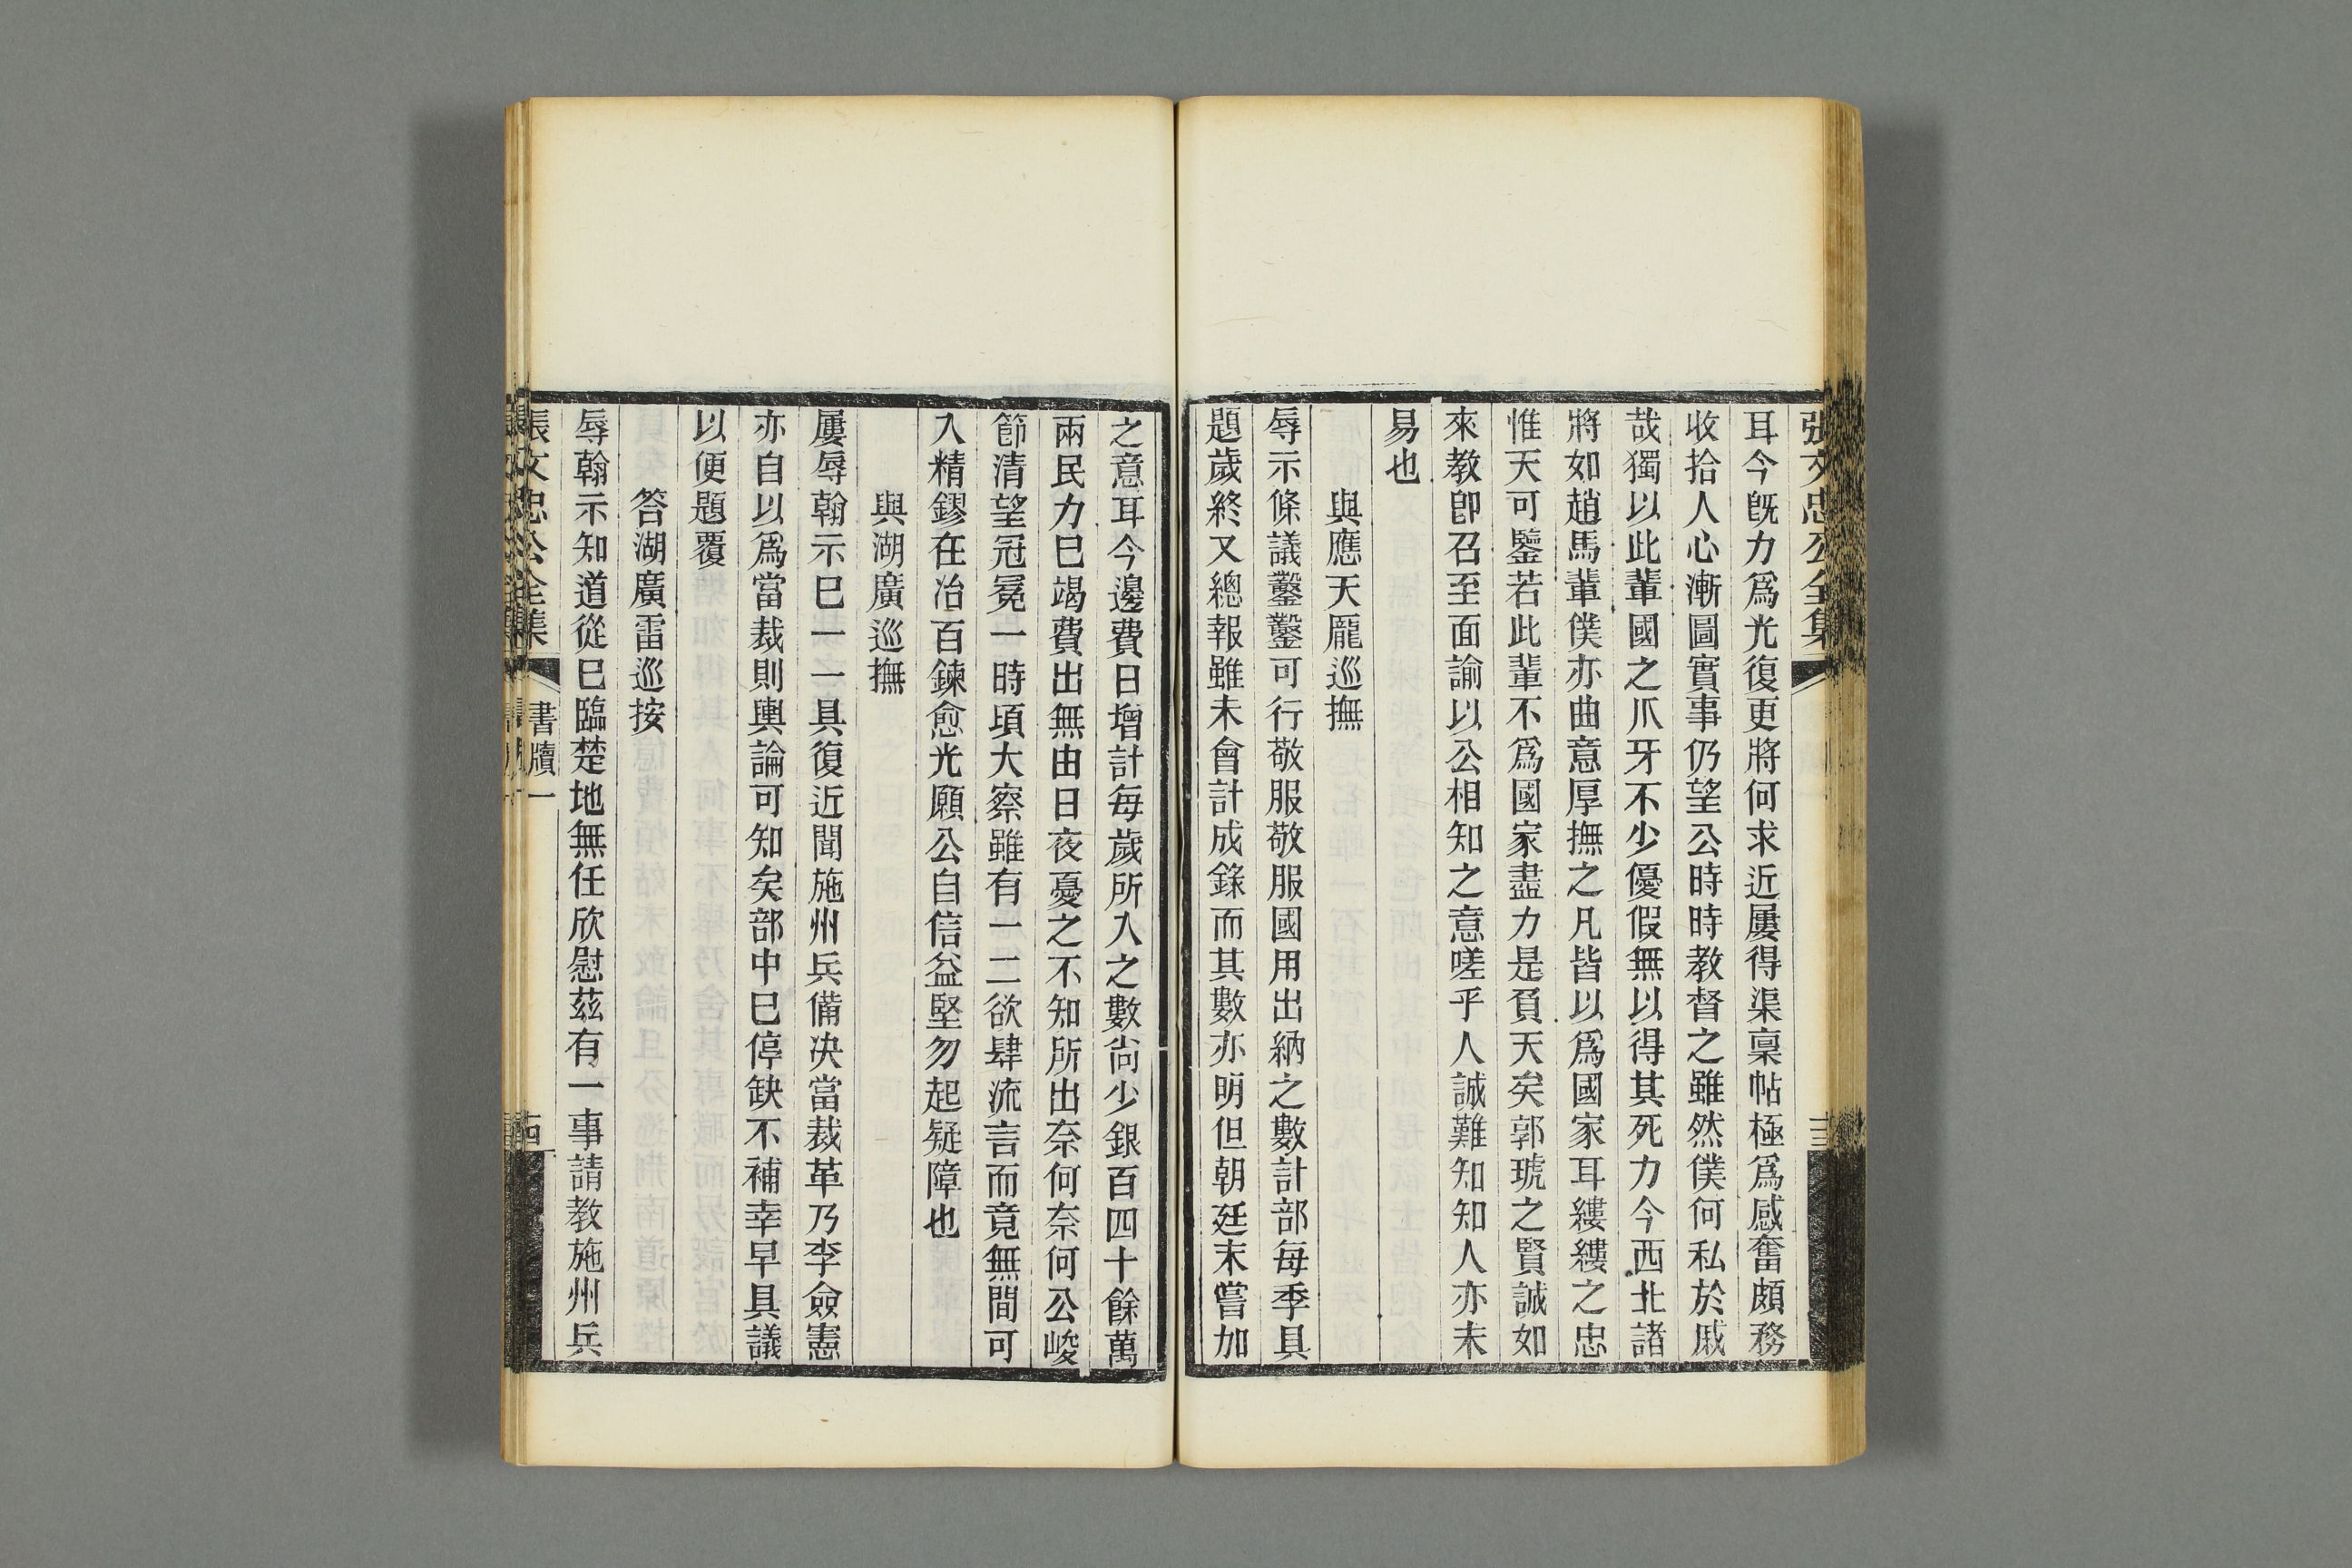 張文忠公全集
耳今旣力爲光復更將何求近屢得渠稟帖極爲感奮頗務
收拾人心漸圖實事仍望公時時教督之雖然僕何私於戚
哉獨以此輩國之爪牙不少優假無以得其死力今西北諸
將如趙馬輩僕亦曲意厚撫之凡皆以爲國家耳縷縷之忠
惟天可鑒若此輩不爲國家盡力是負天矣郭琥之賢誠如
來教卽召至面諭以公相知之意嗟乎人誠難知知人亦未
易也
與應天龎巡撫
辱示條議鑿鑿可行敬服敬服國用出納之數計部每季具
題歲終又總報雖未會計成錄而其數亦明但朝廷末嘗加
之意耳今邊費日增計每歲所入之數尙少銀百四十餘萬
兩民力巳竭費出無由日夜憂之不知所出奈何奈何公峻
節清望冠冕一時頃大察雖有一二欲肆流言而竟無間可
入精鏐在冶百鍊愈光願公自信益堅勿起疑障也
與湖廣巡撫
屢辱翰示巳一一具復近聞施州兵備決當裁革乃李僉憲
亦自以爲當裁則輿論可知矣部中巳停缺不補幸早具議
以便題覆
答湖廣雷巡按
辱翰示知道從巳臨楚地無任欣慰茲有一事請教施州兵
張文忠公全集
書牘一
十四